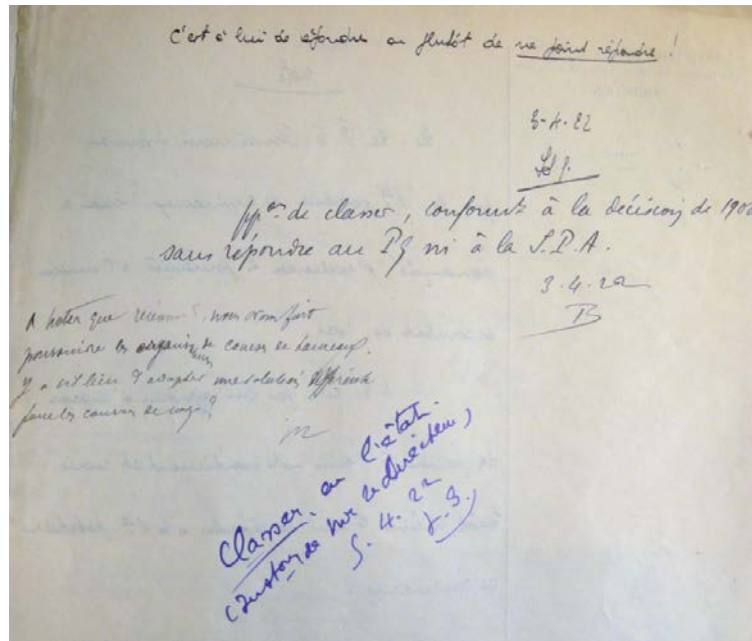 C'est à lui de répondre ou plutôt de ne point répondre !
3-4-22
ppon de classer, conformt à la décision de 190
sans répondre au Pg ni à la S.P.A.
3.4.22
B
A noter que nous avons fait
poursuivre les organisrs de courses de taureaux.
Y a-t-il lieu d'adopter une solution différente
pour les courses de
Classer, en l'état.
(Instons de Mr le Directeur)
5.4.22